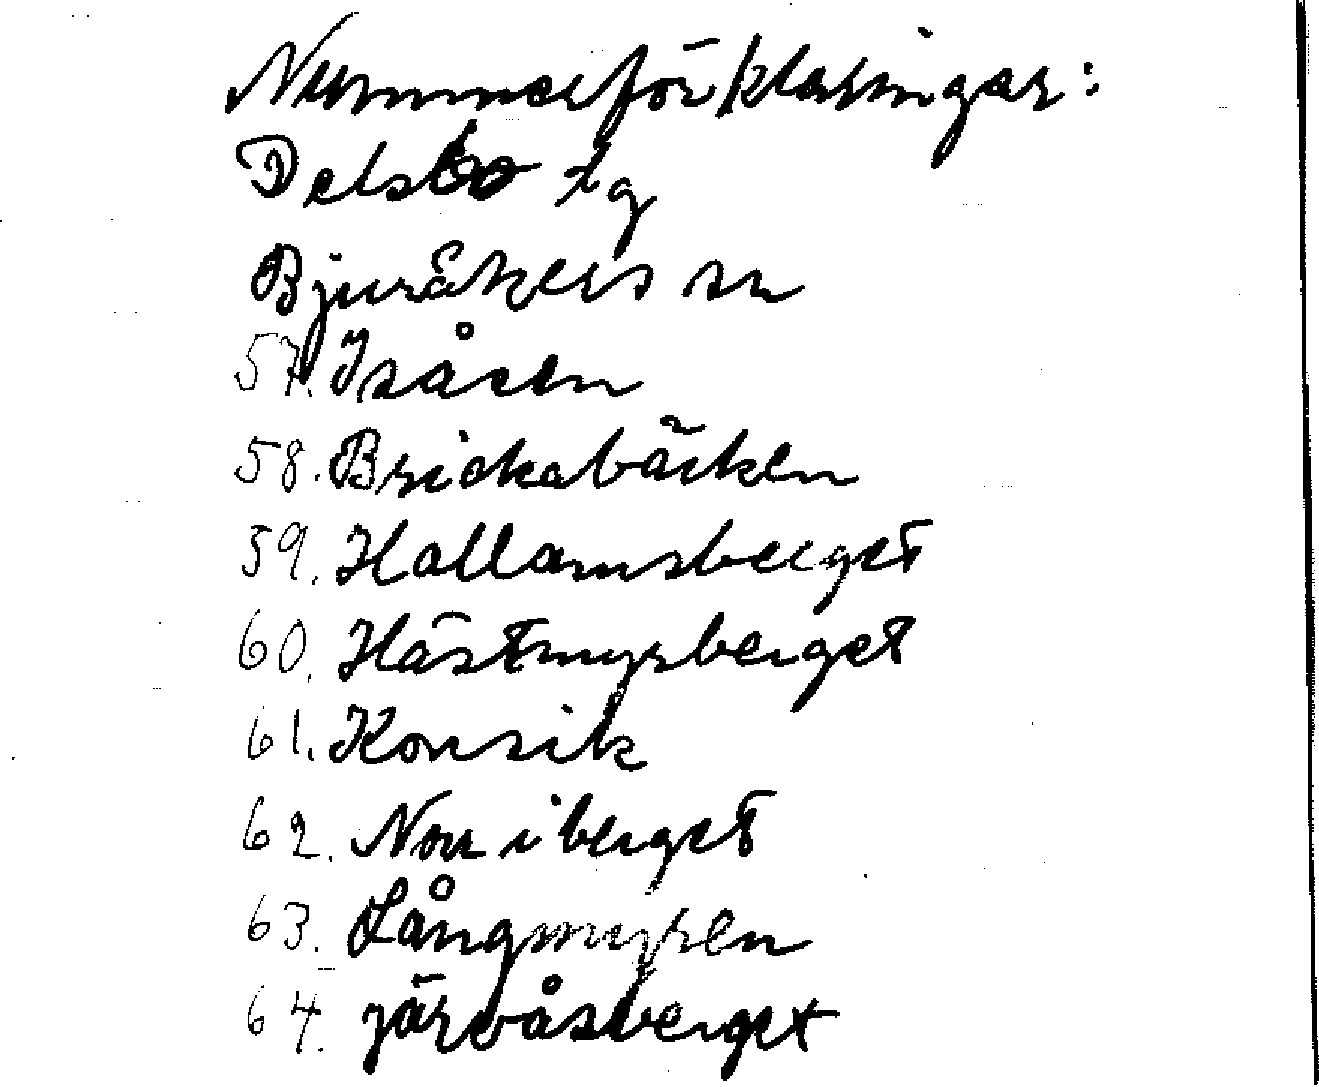 Nummerförklaringar:
Delsbo tg
Bjuråkers sn
57. Isåsen
58. Brickabäcken
59. Hallamsberget
60. Hästmyrberget
61. Korsik
62. Norr i berget
63. Långmyren
64. Järvåsberget